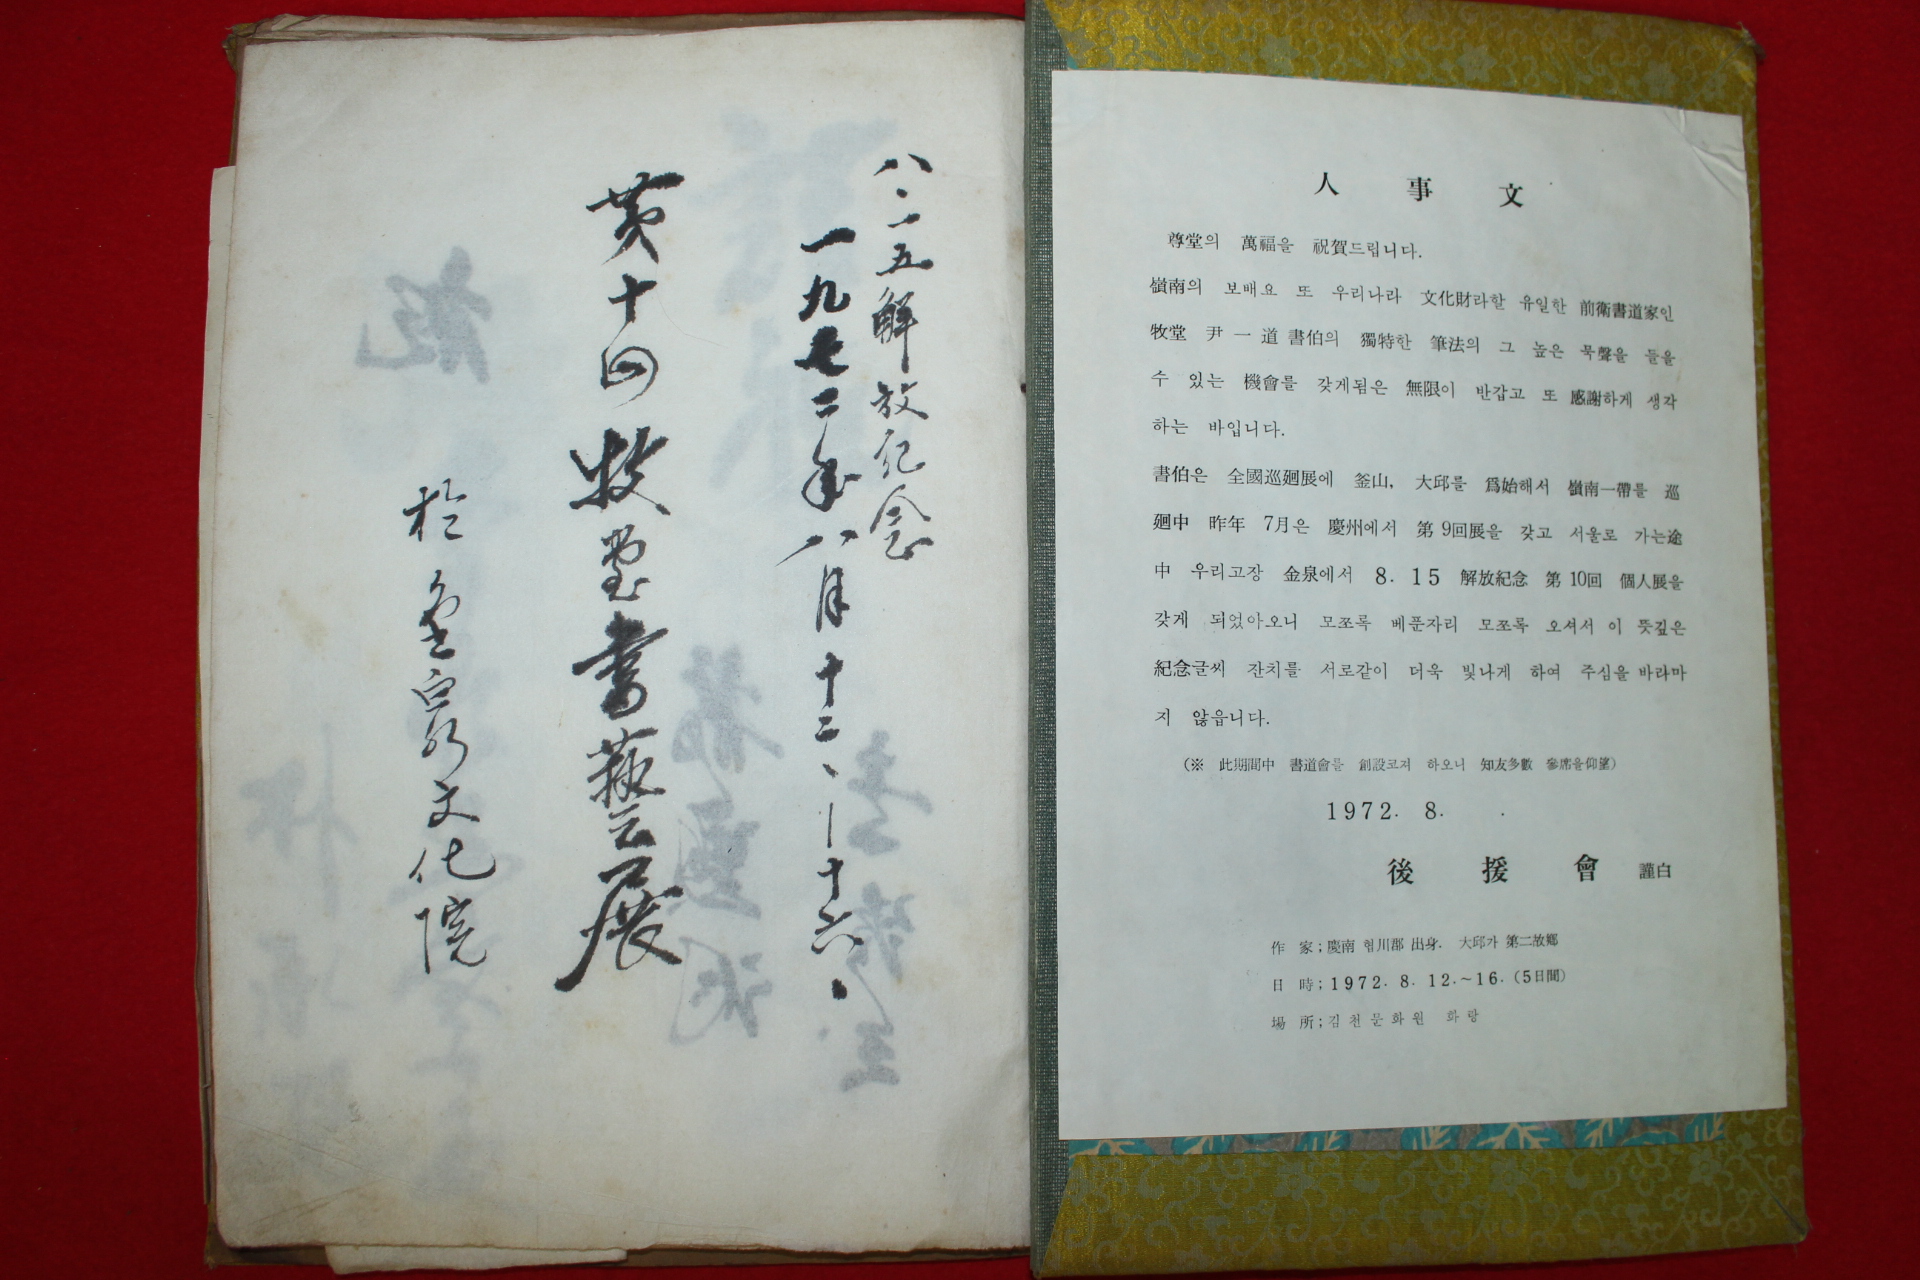 八、一五解放紀念
一九七二年八月十二、｜十六、
第十回 牧堂書藝展
於 金泉文化院
人事文
尊堂의 萬福을 祝賀드립니다.
嶺南의 보배요 또 우리나라 文化財라할 유일한 前衛書道家인
牧堂 尹一道 書伯의 獨特한 筆法의 그 높은 묵聲을 들을
수 있는 機會를 갖게됨은 無限이 반갑고 또 感謝하게 생각
하는 바입니다.
書伯은 全國巡廻展에 釜山, 大邱를 爲始해서 嶺南一帶를 巡
廻中 昨年 7月은 慶州에서 第9回展을 갖고 서울로 가는途
中 우리고장 金泉에서 8. 15 解放紀念 第10回 個人展을
갖게 되었아오니 모쪼록 베푼자리 모쪼록 오셔서 이 뜻깊은
紀念글씨 잔치를 서로같이 더욱 빛나게 하여 주심을 바라마
지 않읍니다.
(※ 此期間中 書道會를 創設코져 하오니 知友多數 參席을仰望)
1972. 8. .
後援會 謹白
作家; 慶南 협川郡 出身. 大邱가 第二故鄕
日時; 1972. 8. 12.~16. (5日間)
場所; 김천문화원 화랑